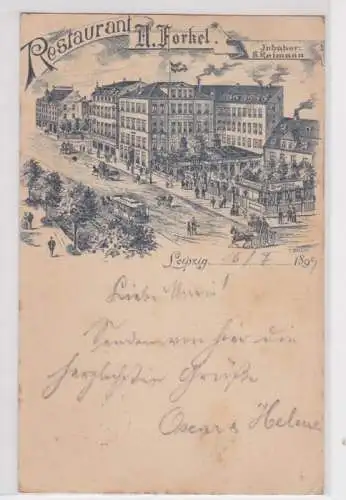 Restaurant A. Forkel.
Inhaber:
Leipzig, 16/7 1899
Liebe Marie!
Senden von hier die
herzlichsten Grüße
Oscar & Helene